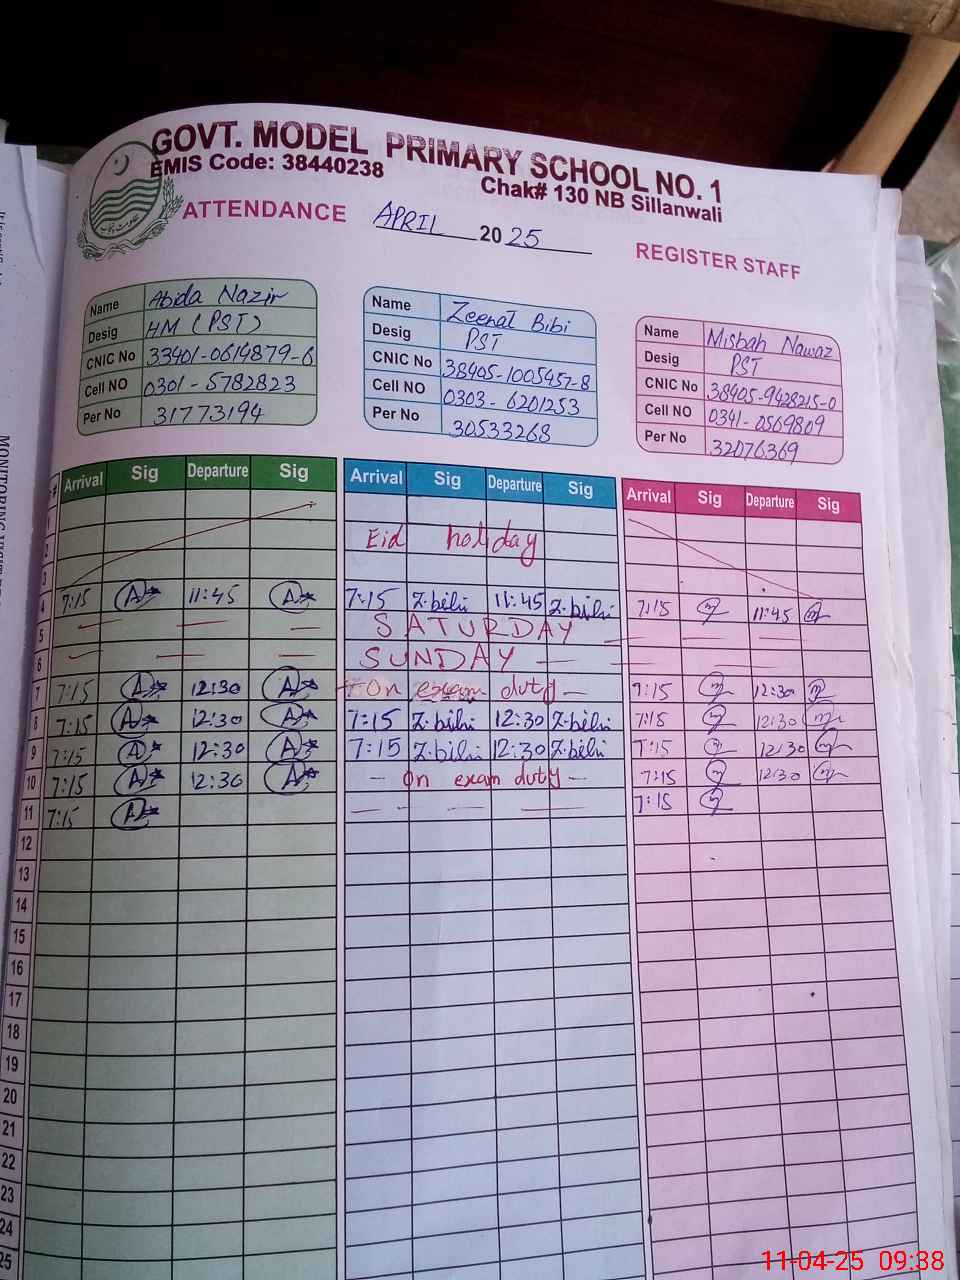 GOVT. MODEL PRIMARY SCHOOL NO. 1
EMIS Code: 38440238
Chak# 130 NB Sillanwali
ATTENDANCE APRIL 2025
REGISTER STAFF
Name Abida Nazir
Desig HM (PST)
CNIC No 33401-0614879-6
Cell NO 0301-5782823
Per No 31773194
Name Zeenat Bibi
Desig PST
CNIC No 38405-1005457-8
Cell NO 0303-6201253
Per No 30533268
Name Misbah Nawaz
Desig PST
CNIC No 38405-9428215-0
Cell NO 0341-0569809
Per No 32076369
# Arrival Sig Departure Sig Arrival Sig Departure Sig Arrival Sig Departure Sig
1
2 Eid holiday
3
4 7:15 A 11:45 A 7:15 Z.bibi 11:45 Z.bibi 7:15 11:45
5 SATURDAY
6 SUNDAY
7 7:15 A 12:30 A On exam duty 7:15 12:30
8 7:15 A 12:30 A 7:15 Z.bibi 12:30 Z.bibi 7:15 12:30
9 7:15 A 12:30 A 7:15 Z.bibi 12:30 Z.bibi 7:15 12:30
10 7:15 A 12:30 A On exam duty 7:15 12:30
11 7:15 A 7:15
12
13
14
15
16
17
18
19
20
21
22
23
24
25
11-04-25 09:38